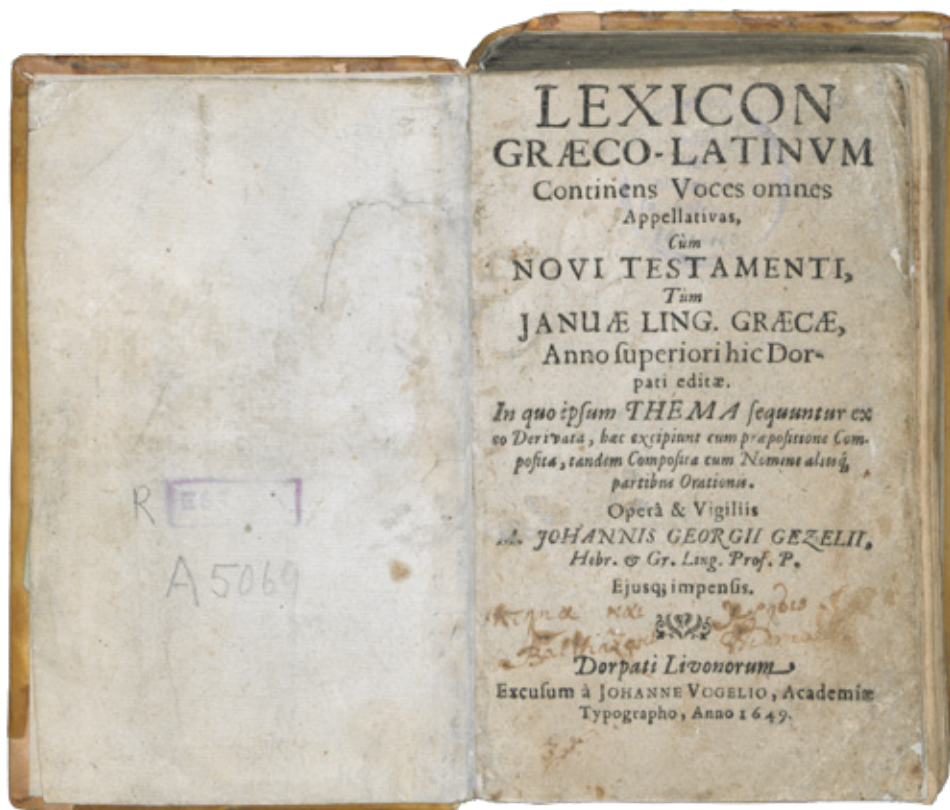 R EST
A 5069
LEXICON
GRÆCO-LATINVM
Continens Voces omnes
Appellativas,
Cùm
NOVI TESTAMENTI,
Tùm
JANUÆ LING. GRÆCÆ,
Anno ſuperiori hic Dor-
pati editæ.
In quo ipſum THEMA ſequuntur ex
eo Derivata, hæc excipiunt cum præpoſitione Com-
poſita, tandem Compoſita cum Nomine aliisq́;
partibus Orationis.
Operâ & Vigiliis
M. JOHANNIS GEORGII GEZELII,
Hebr. & Gr. Ling. Prof. P.
Ejusq; impenſis.
Dorpati Livonorum
Excuſum à JOHANNE VOGELIO, Academiæ
Typographo, Anno 1649.